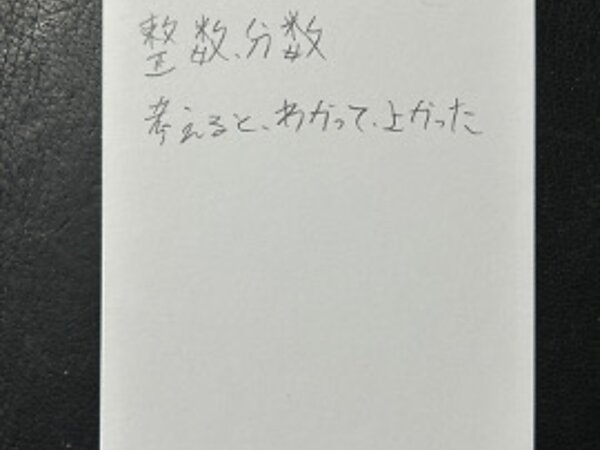 整数、分数
考えると、わかって、上かった